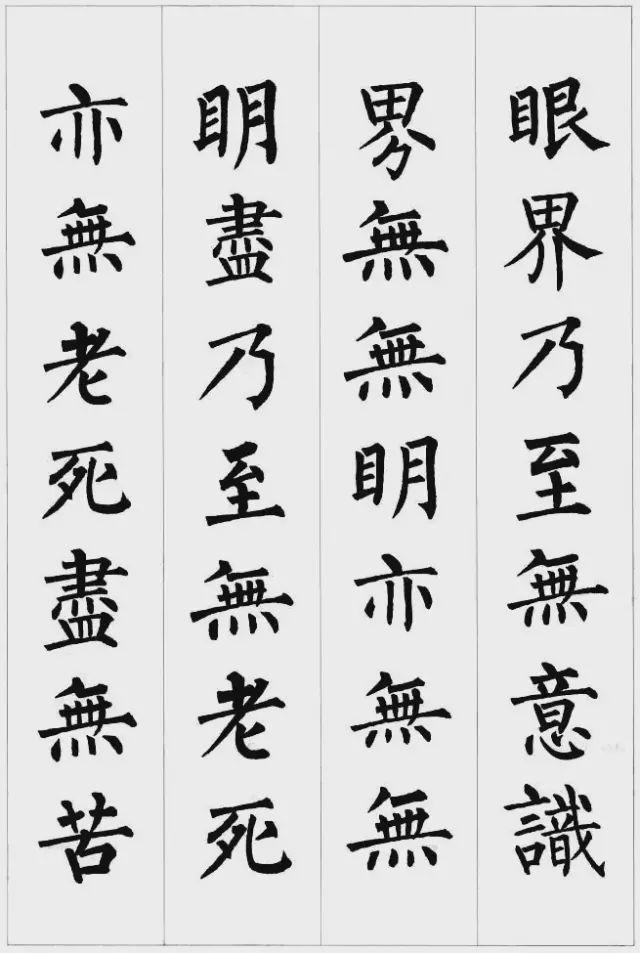 眼界乃至無意識
界無無明亦無無
明盡乃至無老死
亦無老死盡無苦